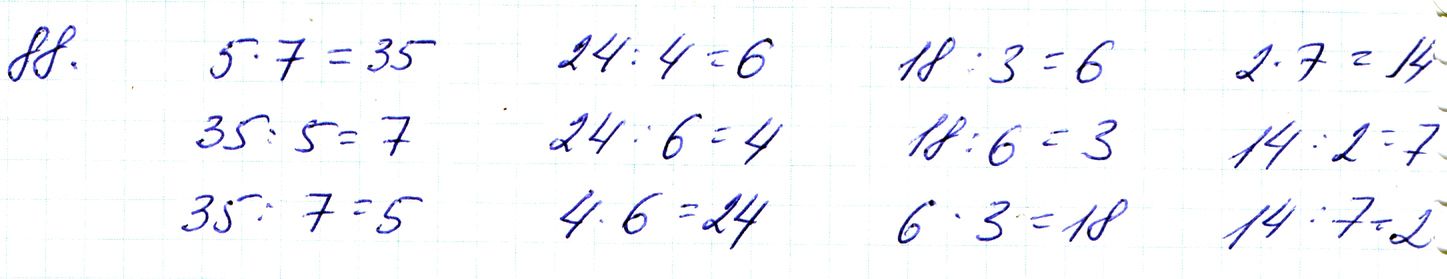 88. 5·7=35 24:4=6 18:3=6 2·7=14
35:5=7 24:6=4 18:6=3 14:2=7
35:7=5 4·6=24 6·3=18 14:7=2